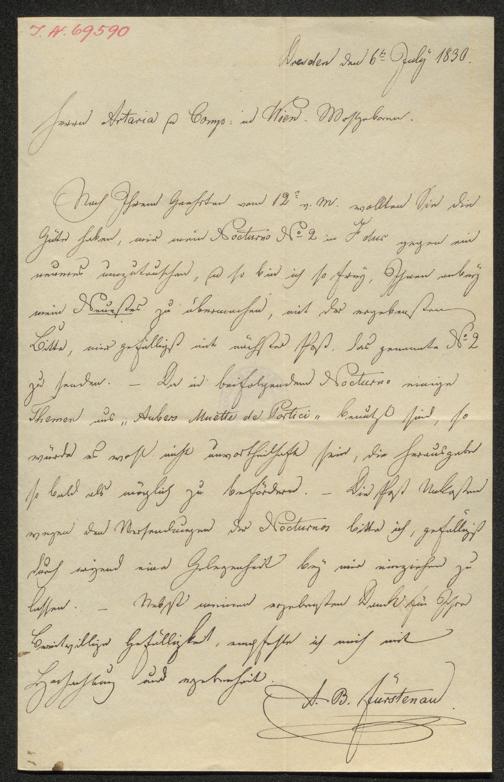 J. N. 69590
Dresden den 6t July 1830.
Herrn Artaria u Comp: in Wien. Wohlgeboren.
Nach Ihrem Geehrten vom 12t v. M. wollten Sie die
Güte haben, mir mein Nocturno No 2 in F dur gegen ein
neueres umzutauschen, u so bin ich so frey, Ihnen anbey
mein Neustes zu übermachen, mit der ergebensten
Bitte, mir gefälligst mit nächster Post, das genannte No 2
zu senden. – Da in beifolgendem Nocturno einige
Themen aus „Aubers Muette de Portici" benutzt sind, so
würde es wohl nicht unvortheilhaft sein, die Herausgabe
so bald als möglich zu befördern. – Die Post Unkosten
wegen den Versendungen der Nocturnos bitte ich, gefälligst
durch irgend eine Gelegenheit bey mir einziehen zu
lassen. – Nebst meinem ergebensten Dank für Ihre
bereitwillige Gefälligkeit, empfehle ich mich mit
Hochachtung und ergebenheit.
A. B. Fürstenau